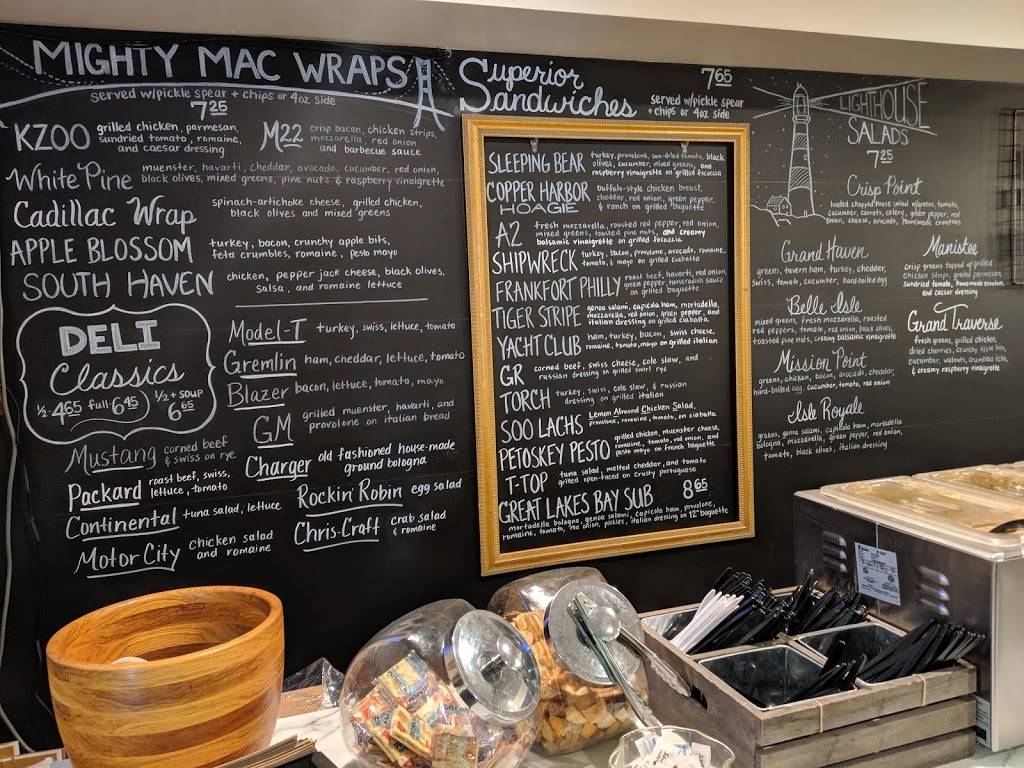 MIGHTY MAC WRAPS
served w/pickle spear + chips or 4oz side
7 25
KZOO grilled chicken, parmesan,
sundried tomato, romaine,
and caesar dressing
M22 crisp bacon, chicken strips,
mozzarella, red onion
and barbecue sauce
White Pine muenster, havarti, cheddar, avocado, cucumber, red onion,
black olives, mixed greens, pine nuts & raspberry vinaigrette
Cadillac Wrap spinach-artichoke cheese, grilled chicken,
black olives and mixed greens
APPLE BLOSSOM turkey, bacon, crunchy apple bits,
feta crumbles, romaine, pesto mayo
SOUTH HAVEN chicken, pepper jack cheese, black olives,
salsa, and romaine lettuce
DELI
Classics
1/2- 4.65 full- 6.45 1/2 + soup
6 65
Model-T turkey, swiss, lettuce, tomato
Gremlin ham, cheddar, lettuce, tomato
Blazer bacon, lettuce, tomato, mayo
GM grilled muenster, havarti, and
provolone on italian bread
Mustang corned beef
& swiss on rye
Charger old fashioned house-made
ground bologna
Packard roast beef, swiss,
lettuce, tomato
Rockin' Robin egg salad
Continental tuna salad, lettuce
Chris-Craft crab salad
& romaine
Motor City chicken salad
and romaine
Superior
Sandwiches
7 65
served w/pickle spear
+ chips or 4oz side
SLEEPING BEAR turkey, provolone, sun-dried tomato, black
olives, cucumber, mixed greens, and
raspberry vinaigrette on grilled focaccia
COPPER HARBOR
HOAGIE
buffalo-style chicken breast,
cheddar, red onion, green pepper,
& ranch on grilled baguette
A2 fresh mozzarella, roasted red pepper, red onion,
mixed greens, toasted pine nuts, and creamy
balsamic vinaigrette on grilled focaccia
SHIPWRECK turkey, bacon, provolone, avocado, romaine,
tomato, & mayo on grilled ciabatta
FRANKFORT PHILLY roast beef, havarti, red onion,
green pepper, horseradish sauce
on grilled baguette
TIGER STRIPE genoa salami, capicola ham, mortadella,
mozzarella, red onion, green pepper, and
italian dressing on grilled ciabatta
YACHT CLUB ham, turkey, bacon, swiss cheese,
romaine, tomato, mayo on grilled italian
GR corned beef, swiss cheese, cole slaw, and
russian dressing on grilled swirl rye
TORCH turkey, swiss, cole slaw, & russian
dressing on grilled italian
SOO LACHS Lemon Almond Chicken Salad,
provolone, romaine, tomato, on ciabatta
PETOSKEY PESTO grilled chicken, muenster cheese,
romaine, tomato, red onion, and
pesto mayo on french baguette
T-TOP tuna salad, melted cheddar, and tomato
grilled open-faced on crusty portuguese
GREAT LAKES BAY SUB 8 65
mortadella bologna, genoa salami, capicola ham, provolone,
romaine, tomato, red onion, pickles, italian dressing on 12" baguette
LIGHTHOUSE
SALADS
7 25
Crisp Point
loaded chopped house salad w/greens, tomato,
cucumber, carrots, celery, green pepper, red
onion, cheese, avocado, homemade croutons
Grand Haven
greens, tavern ham, turkey, cheddar,
swiss, tomato, cucumber, hard-boiled egg
Manistee
crisp greens topped w/ grilled
chicken strips, grated parmesan,
sundried tomato, homemade croutons,
and caesar dressing
Belle Isle
mixed greens, fresh mozzarella, roasted
red peppers, tomato, red onion, black olives,
toasted pine nuts, creamy balsamic vinaigrette
Grand Traverse
fresh greens, grilled chicken,
dried cherries, crunchy apple bits,
cucumber, walnuts, crumbled feta,
& creamy raspberry vinaigrette
Mission Point
greens, chicken, bacon, avocado, cheddar,
hard-boiled egg, cucumber, tomato, red onion
Isle Royale
greens, genoa salami, capicola ham, mortadella
bologna, mozzarella, green pepper, red onion,
tomato, black olives, italian dressing